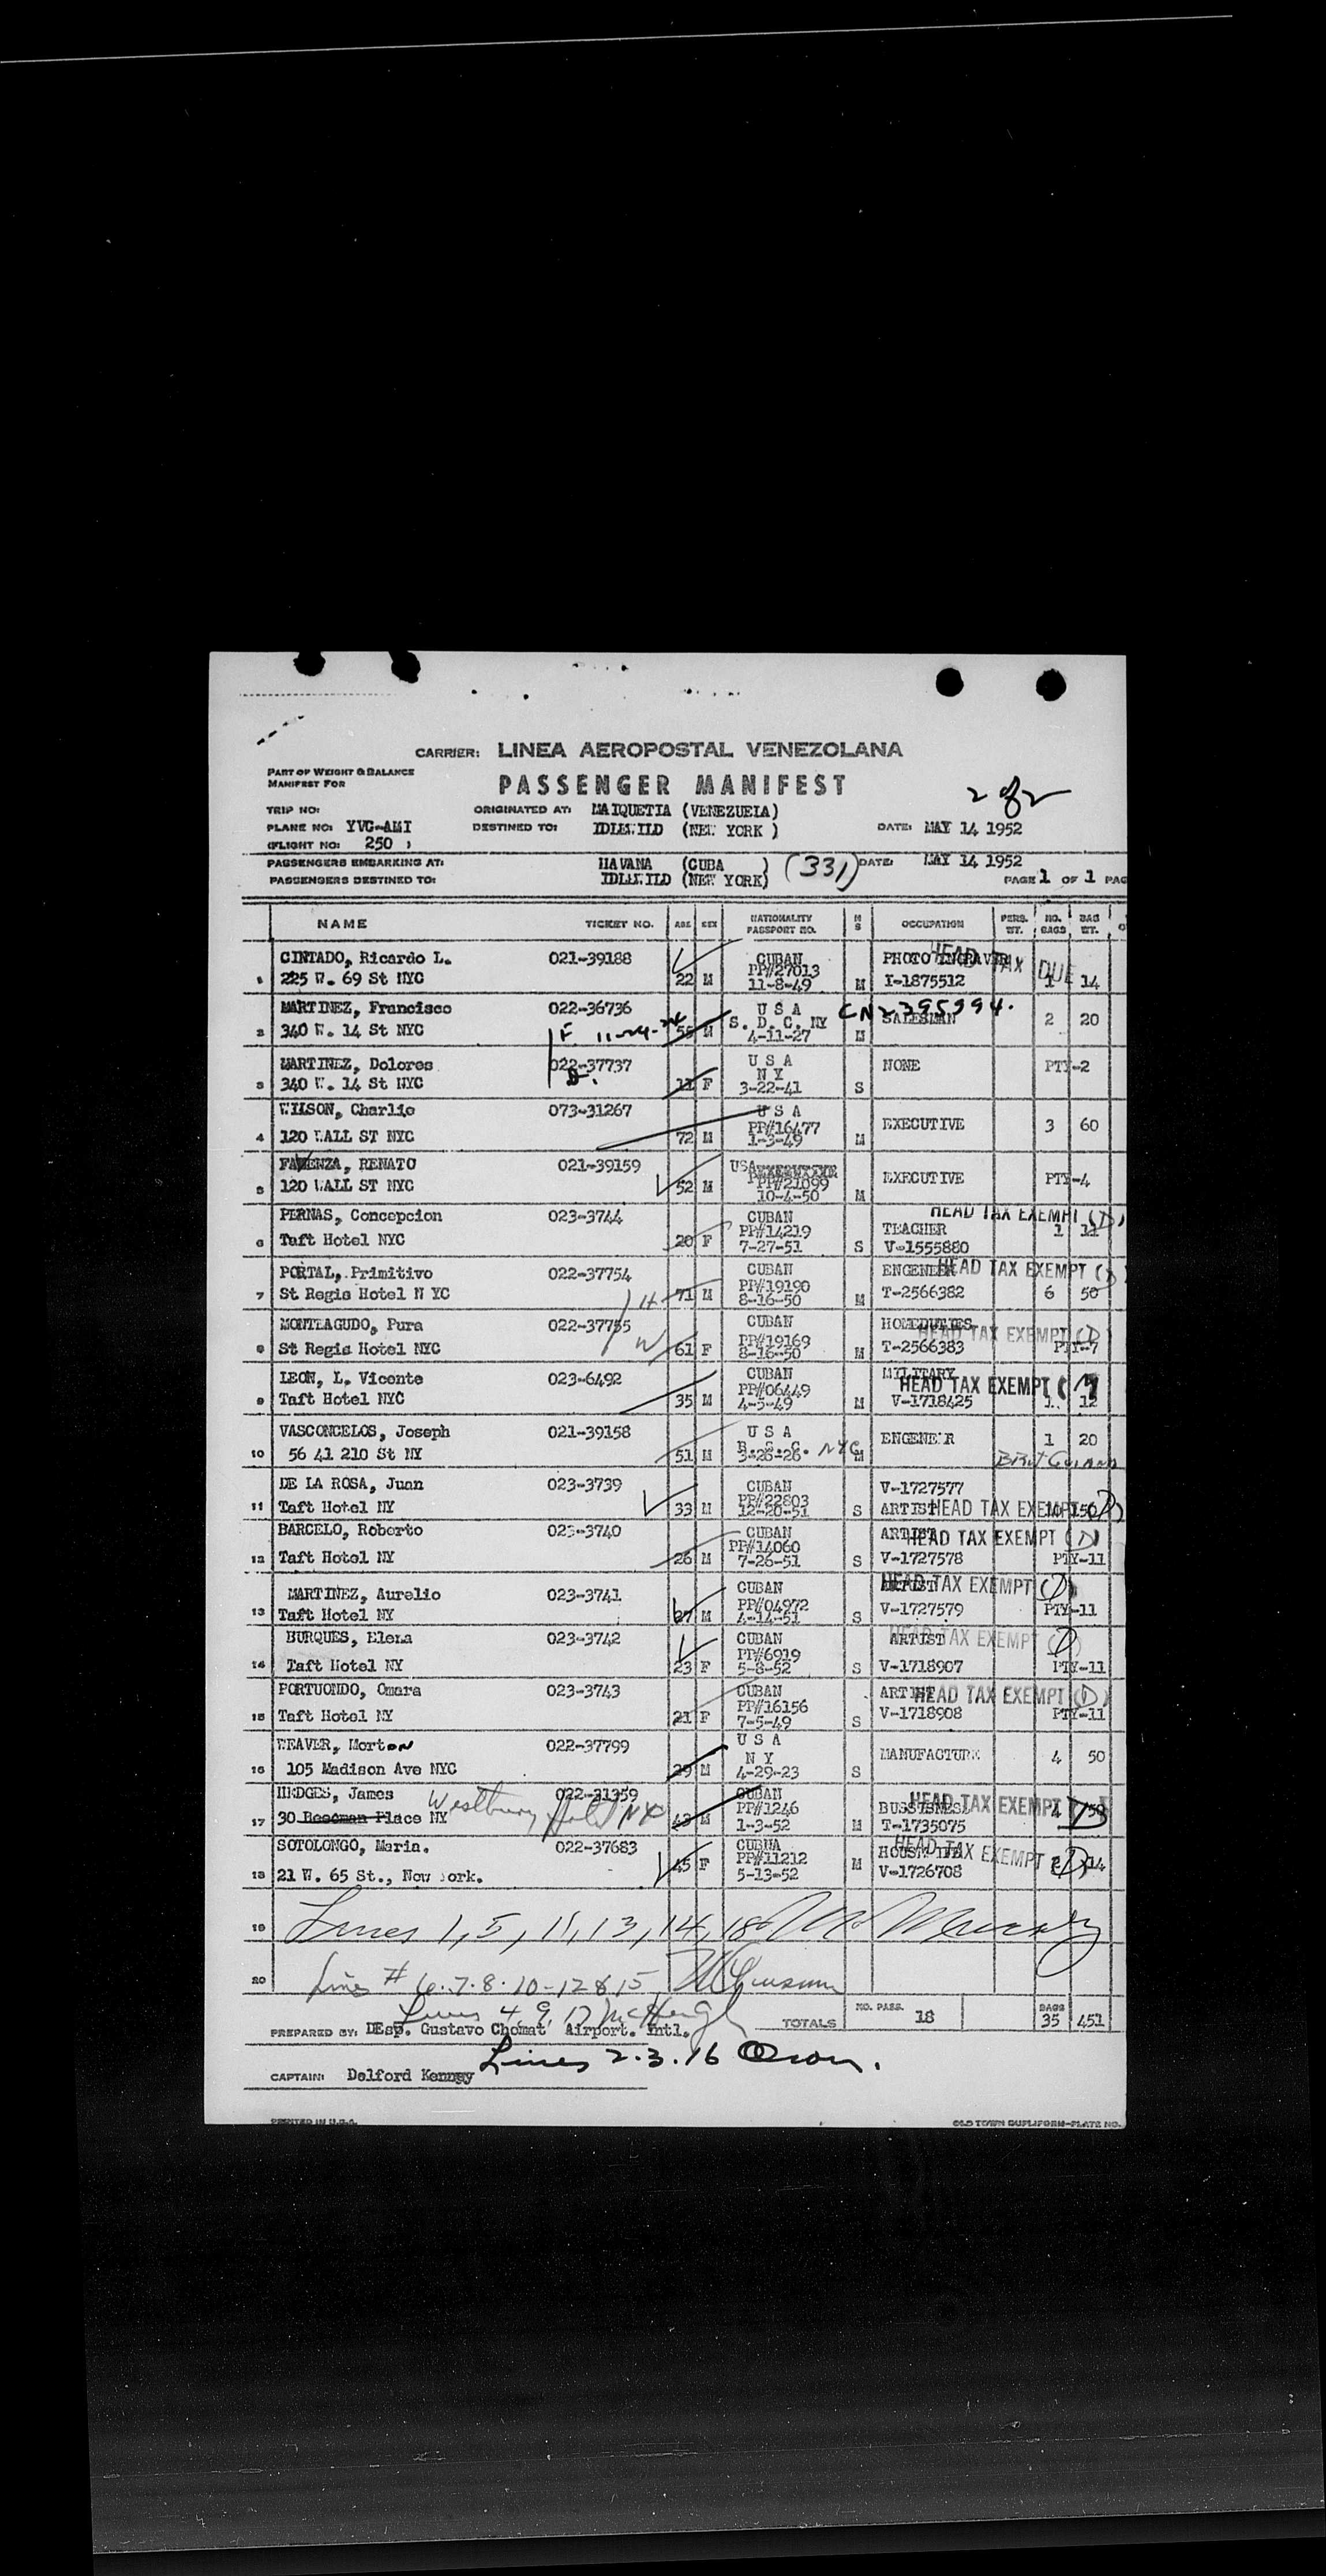 CARRIER: LINEA AEROPOSTAL VENEZOLANA
PART OF WEIGHT & BALANCE
MANIFEST FOR
PASSENGER MANIFEST
2 of 2
TRIP NO: ORIGINATED AT: MAIQUETIA (VENEZUELA)
PLANE NO: YVC-AMI DESTINED TO: IDLEWILD (NEW YORK ) DATE: MAY 14 1952
(FLIGHT NO: 250 )
PASSENGERS EMBARKING AT: HAVANA (CUBA ) (331) DATE: MAY 14 1952
PASSENGERS DESTINED TO: IDLEWILD (NEW YORK) PAGE 1 OF 1 PAG
NAME TICKET NO. AGE SEX NATIONALITY PASSPORT NO. M S OCCUPATION PERS. WT. NO. BAGS BAG WT.
CINTADO, Ricardo L. 021-39188 CUBAN PHOTO ENGRAVER HEAD TAX DUE
PP#27013
1 225 W. 69 St NYC 22 M 11-8-49 M I-1875512 1 14
MARTINEZ, Francisco 022-36736 U S A CN2395994.
2 340 W. 14 St NYC F. 11-24-24 M S. D. C. NY SALESMAN 2 20
4-11-27 M
MARTINEZ, Dolores 022-37737 U S A NONE PTY-2
N Y
3 340 W. 14 St NYC D. 11 F 3-22-41 S
WILSON, Charlie 073-31267 U S A
PP#16477 EXECUTIVE 3 60
4 120 WALL ST NYC 72 M 1-3-49 M
RENATO 021-39159 USA
5 120 WALL ST NYC 52 M PP#21099 EXECUTIVE PTY-4
10-4-50 M
PERNAS, Concepcion 023-3744 CUBAN HEAD TAX EXEMPT (D)
PP#14219 TEACHER 1 11
6 Taft Hotel NYC 20 F 7-27-51 S V-1555880
PORTAL, Primitivo 022-37754 CUBAN ENGENEER HEAD TAX EXEMPT (D)
7 St Regis Hotel N YC H 71 M PP#19190 T-2566382 6 50
8-16-50 M
MONTEAGUDO, Pura 022-37755 CUBAN HOMEDUTIES HEAD TAX EXEMPT (D)
8 St Regis Hotel NYC W 61 F PP#19169 T-2566383 PTY-7
8-16-50 M
LEON, L. Vicente 023-6492 CUBAN MILITARY
PP#06449 HEAD TAX EXEMPT
9 Taft Hotel NYC 35 M 4-5-49 M V-1718425 1 12
VASCONCELOS, Joseph 021-39158 U S A ENGENE'R 1 20
10 56 41 210 St NY 51 M 3-26-26 NYC M Brit Guiana
DE LA ROSA, Juan 023-3739 CUBAN V-1727577
PP#22803
11 Taft Hotel NY 33 M 12-20-51 S ARTIST HEAD TAX EXEMPT (D) 10 150
BARCELO, Roberto 023-3740 CUBAN ARTIST HEAD TAX EXEMPT (D)
PP#14060
12 Taft Hotel NY 26 M 7-26-51 S V-1727578 PTY-11
MARTINEZ, Aurelio 023-3741 CUBAN ARTIST HEAD TAX EXEMPT (D)
PP#04972
13 Taft Hotel NY 27 M 4-14-51 S V-1727579 PTY-11
BURQUES, Elena 023-3742 CUBAN ARTIST HEAD TAX EXEMPT (D)
PP#6919
14 Taft Hotel NY 23 F 5-8-52 S V-1718907 PTY-11
PORTUONDO, Omara 023-3743 CUBAN ARTIST HEAD TAX EXEMPT (D)
PP#16156
15 Taft Hotel NY 21 F 7-5-49 S V-1718908 PTY-11
WEAVER, Morton 022-37799 U S A
N Y MANUFACTURE 4 50
16 105 Madison Ave NYC 29 M 4-29-23 S
HEDGES, James 022-31359 CUBAN HEAD TAX EXEMPT
Westbury Hotel NYC PP#1246 BUSSISNES 4
17 30 Beecman Place NY 43 M 1-3-52 M T-1735075
SOTOLONGO, Maria. 022-37683 CUBUA HEAD TAX EXEMPT (D)
PP#11212 M 14
18 21 W. 65 St., New ork. 45 F 5-13-52 V-1726708
19 Lines 1, 5, 11, 13, 14, 18
20 Line # 6.7.8.10-12&15
Lines 4, 9, 17
PREPARED BY: DEsp. Gustavo Chomat Airport. Intl. TOTALS NO. PASS. 18 BAGS 35 451
Lines 2.3.16
CAPTAIN: Delford Kenney
PRINTED IN U.S.A. OLD TOWN DUPLIFORM-PLATE NO.